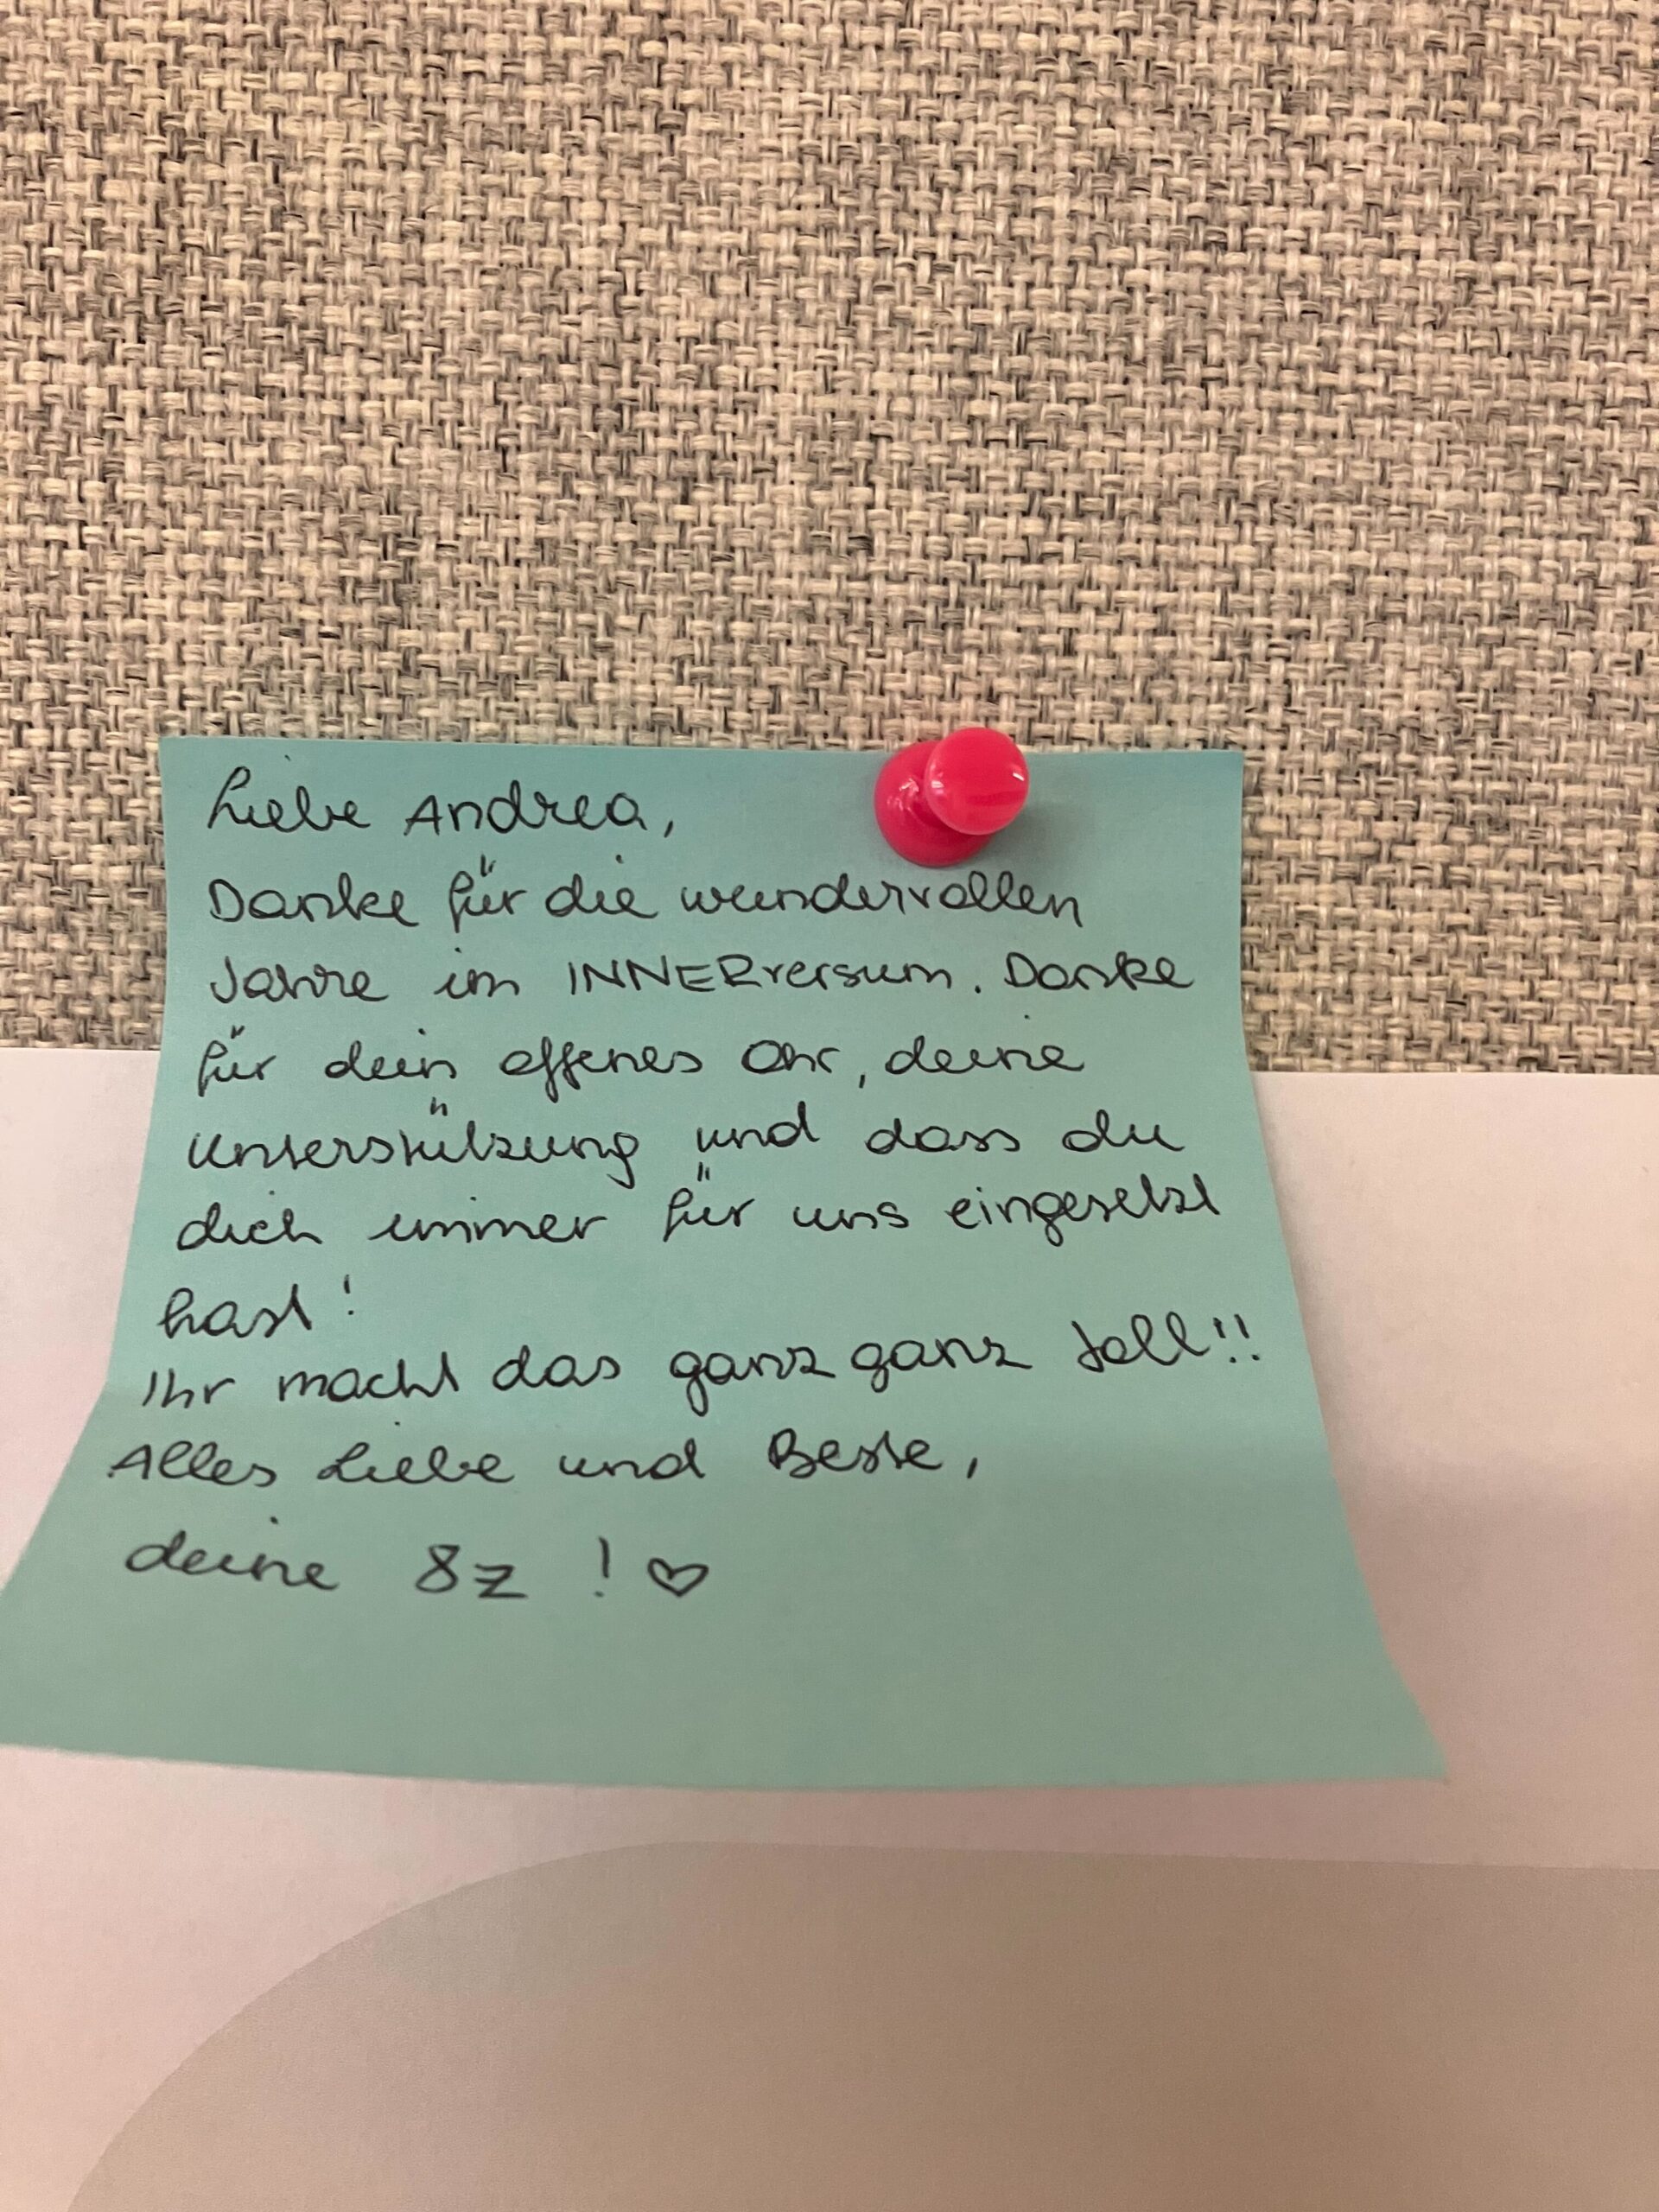 Liebe Andrea,
Danke für die wundervollen
Jahre im INNERversum. Danke
für dein offenes Ohr, deine
Unterstützung und dass du
dich immer für uns eingesetzt
hast!
Ihr macht das ganz ganz toll!!
Alles Liebe und Beste,
deine 8z ! ♡